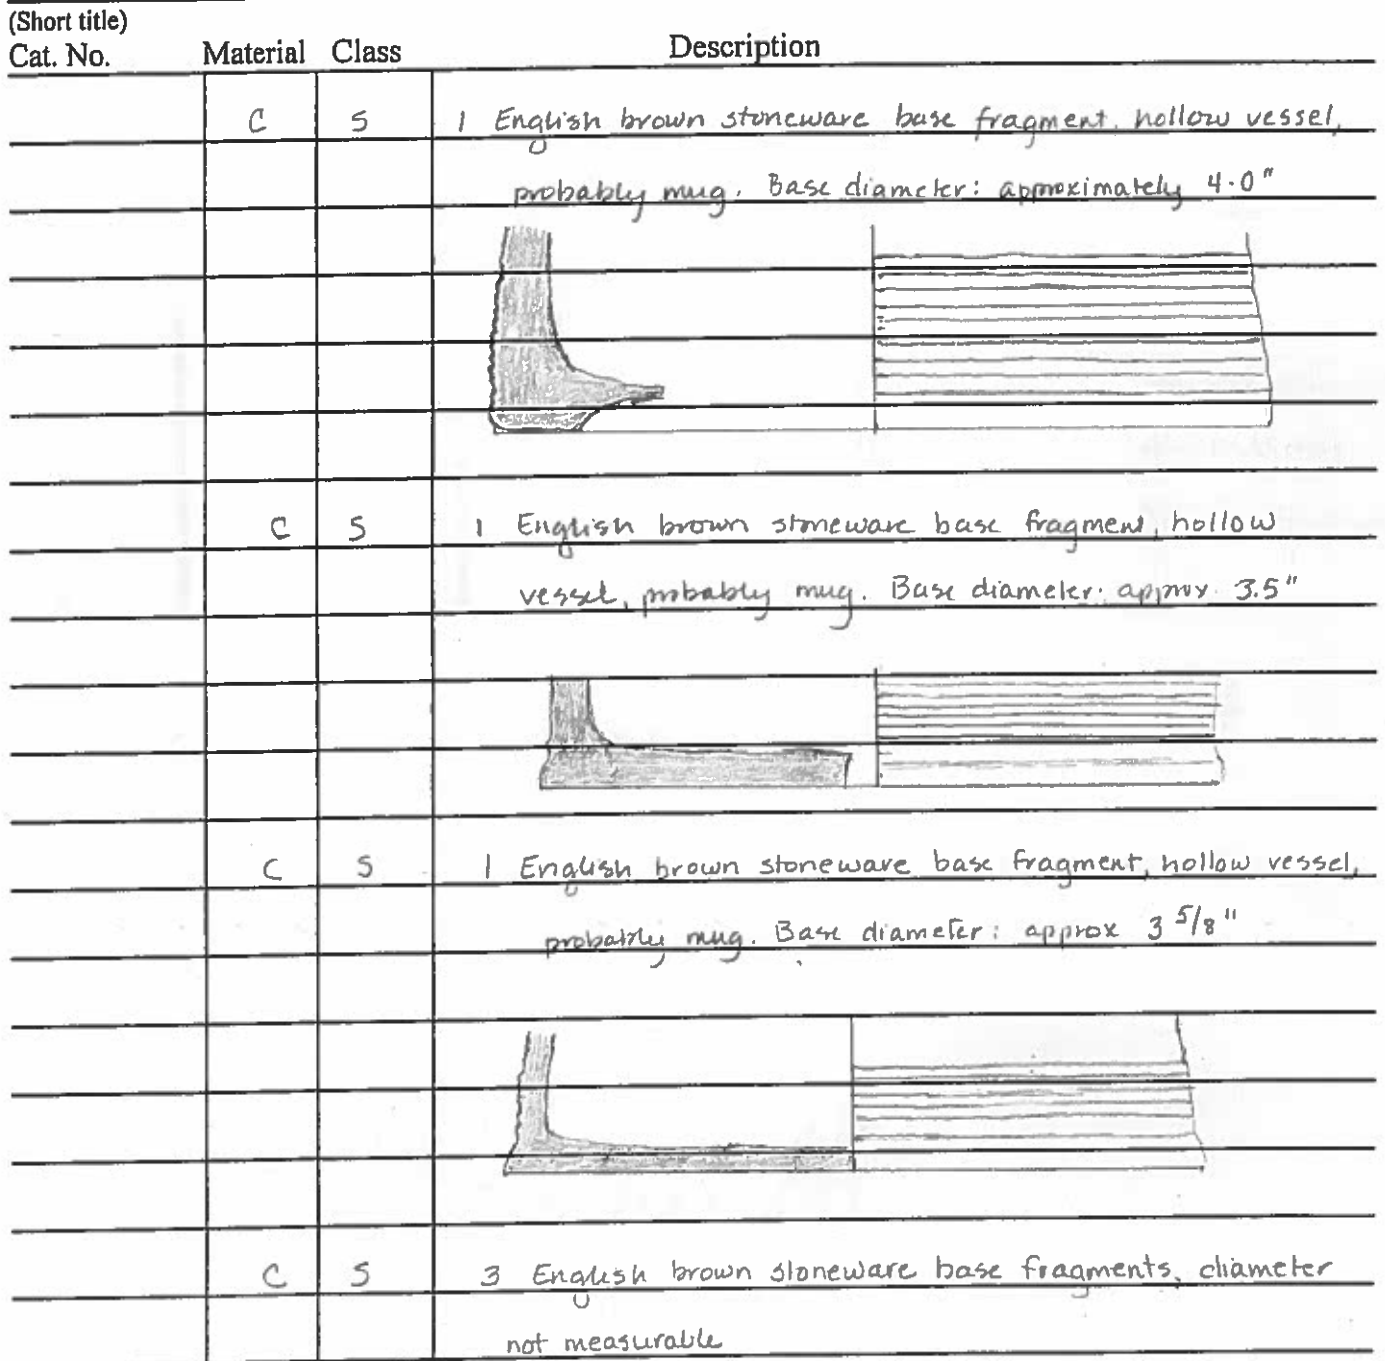 (Short title)
Cat. No. Material Class Description
C S 1 English brown stoneware base fragment, hollow vessel,
probably mug. Base diameter: approximately 4.0"
C S 1 English brown stoneware base fragment, hollow
vessel, probably mug. Base diameter: approx. 3.5"
C S 1 English brown stoneware base fragment, hollow vessel,
probably mug. Base diameter: approx 3 5/8"
C S 3 English brown stoneware base fragments, diameter
not measurable